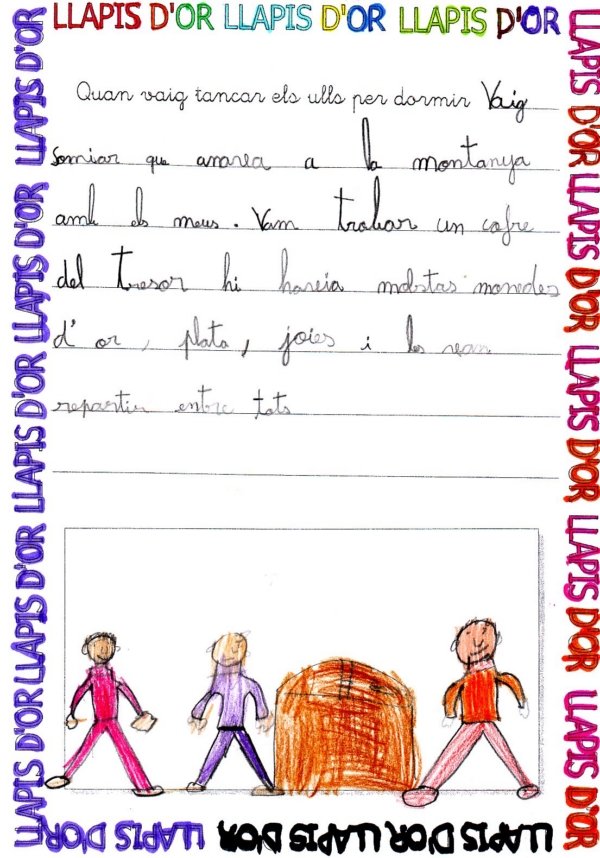 LLAPIS D'OR LLAPIS D'OR LLAPIS D'OR
Quan vaig tancar els ulls per dormir Vaig
somiar que anavea a la montanya
amb els meus. Vam trobar un cofre
del tresor hi haveia moltas monedes
d'or, plata, joies i les vam
repartir entre tots
LLAPIS D'OR LLAPIS D'OR LLAPIS D'OR LLAPIS D'OR LLAPIS D'OR
LLAPIS D'OR LLAPIS D'OR LLAPIS D'OR LLAPIS D'OR LLAPIS D'OR
LLAPIS D'OR LLAPIS D'OR LLAPIS D'OR